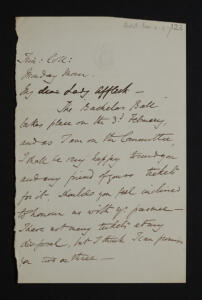 Trin: Coll:
Monday Morn.
My dear Lady Affleck –
The Bachelors Ball
takes place on the 3rd February
and as I am on the Committee,
I shall be very happy to send you
and any friend of yours tickets
for it. Should you feel inclined
to honour us with yr. presence –
There are not many tickets at my
disposal, but I think I can promise
you two or three –